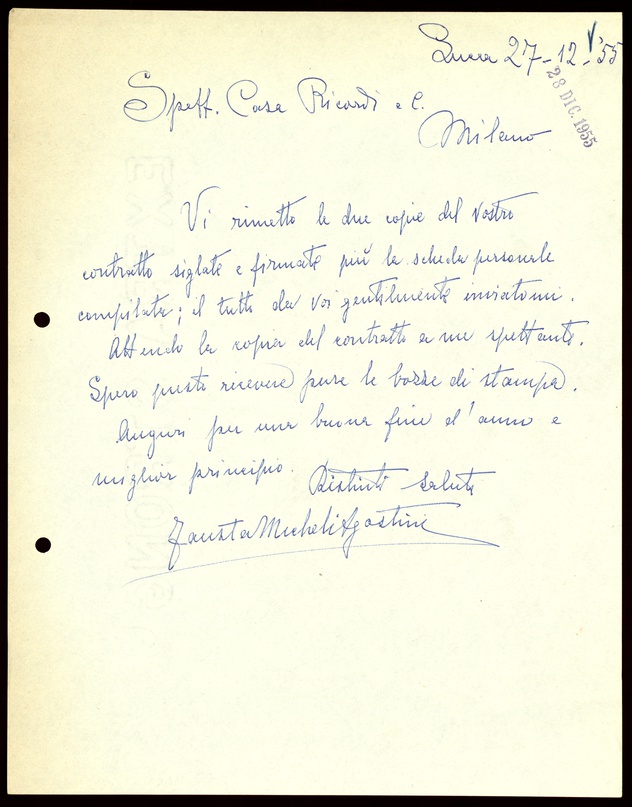 Lucca 27-12-'55
28 DIC. 1955
Spett. Casa Ricordi e C.
Milano
Vi rimetto le due copie del Vostro
contratto siglate e firmate più la scheda personale
compilata; il tutto da Voi gentilmente inviatomi.
Attendo la copia del contratto a me spettante.
Spero presto ricevere pure le bozze di stampa.
Auguri per una buona fine d'anno e
miglior principio. Distinti saluti
Fausta Micheli Agostini